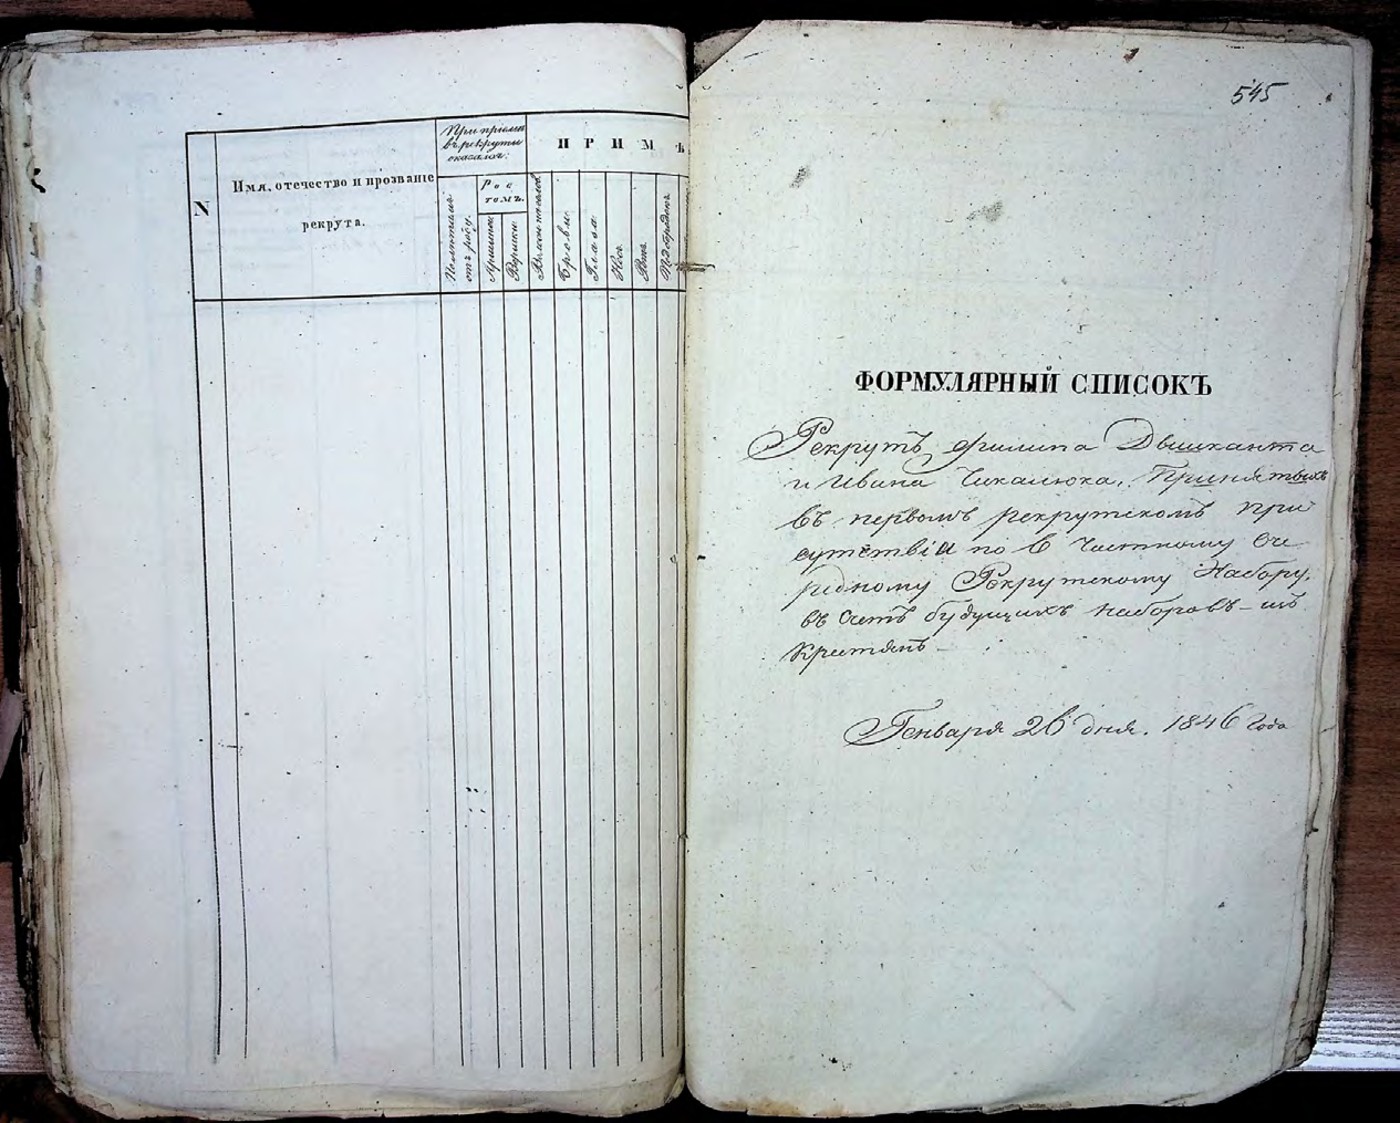 N
Имя, отечество и прозваніе
рекрута.
При пріемѣ
въ рекруты
оказалось:
Сколько лѣтъ
отъ роду.
Рос
томъ.
Аршинъ
Вершки
П Р И М Ѣ
Брови
Глаза
Носъ
Ротъ
Подбородокъ
545
ФОРМУЛЯРНЫЙ СПИСОКЪ
Рекрутъ Филипа Дышканта
и Ивана Чикалюка, Принятыхъ
въ первомъ рекрутскомъ при
сутствіи по 6 Частному Оче
редному Рекрутскому Набору,
въ счетъ будущихъ наборовъ – изъ
Крестянъ
Генваря 26 дня. 1846 Года